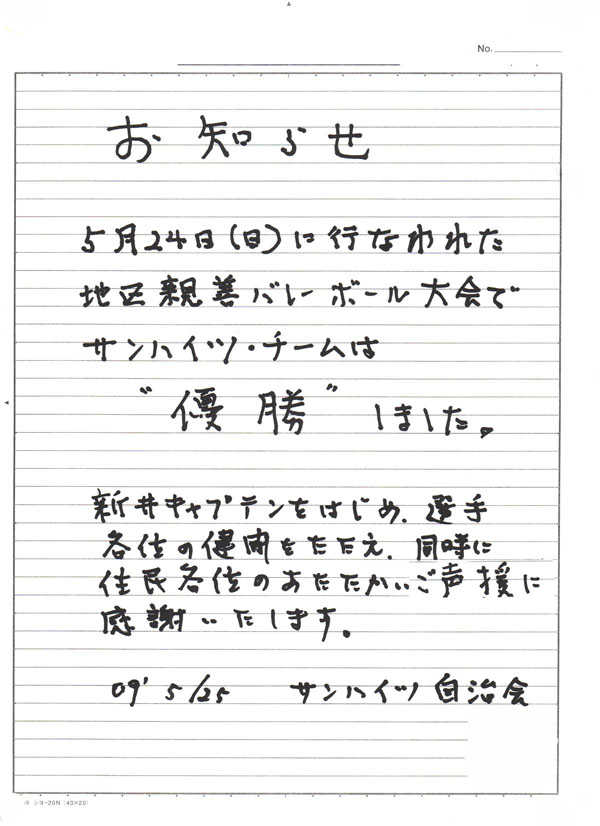 No.
お知らせ
5月24日(日)に行なわれた
地区親善バレーボール大会で
サンハイツ・チームは
"優勝"しました。
新井キャプテンをはじめ、選手
各位の健闘をたたえ、同時に
住民各位のあたたかいご声援に
感謝いたします。
09' 5/25 サンハイツ自治会
-20N (40×20)